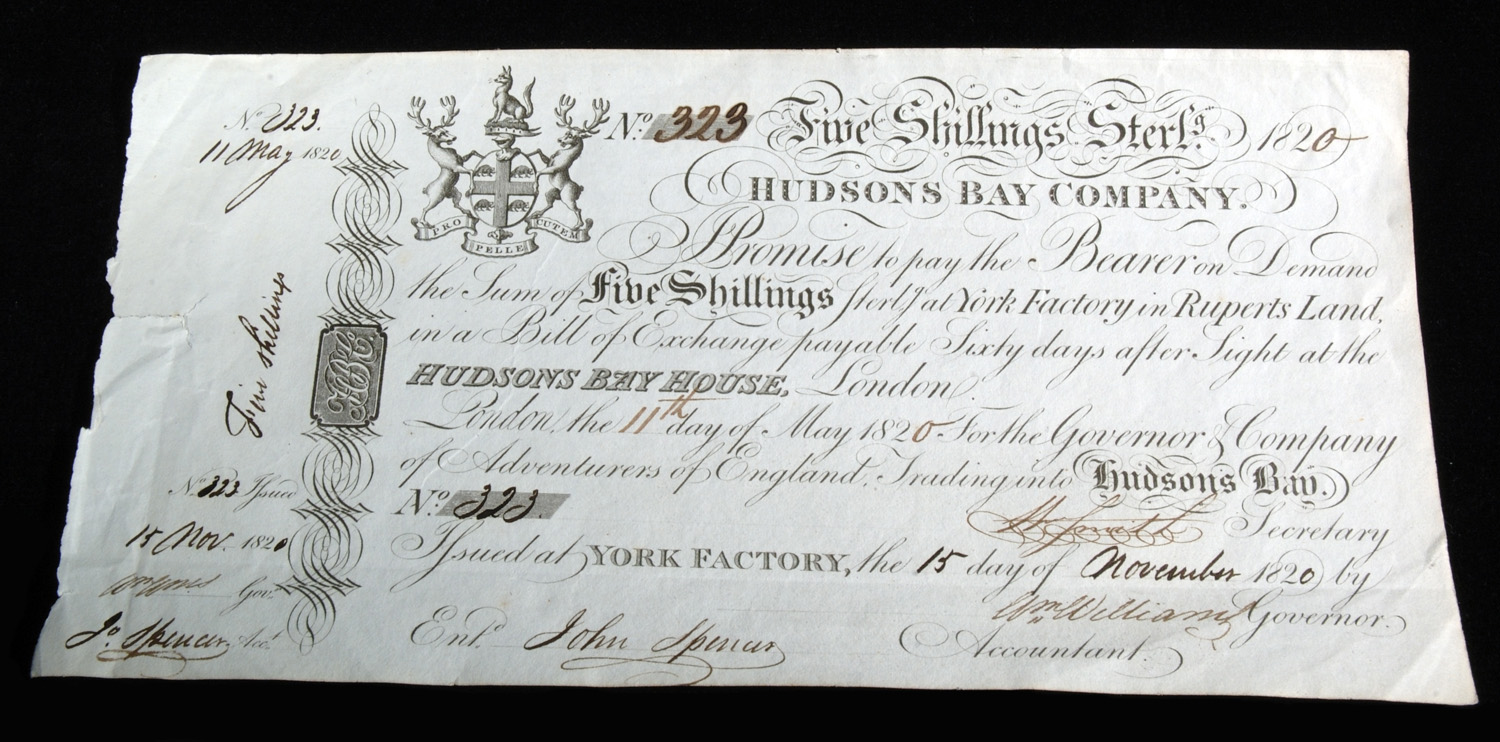 No. 323.
11 May 1820
Five shillings
No. 323 Issued
15 Nov. 1820
Govr.
Jo. Spencer Acct.
PRO PELLE CUTEM
HBC
No. 323 Five Shillings Sterlg. 1820
HUDSONS BAY COMPANY.
Promise to pay the Bearer on Demand
the Sum of Five Shillings Sterlg. at York Factory in Ruperts Land,
in a Bill of Exchange payable Sixty days after Sight at the
HUDSONS BAY HOUSE, London.
London, the 11th day of May 1820 For the Governor & Company
of Adventurers of England, Trading into Hudsons Bay.
No. 323.
Wm Smith Secretary
Issued at YORK FACTORY, the 15 day of November 1820 by
Wm Williams Governor.
Entd. John Spencer Accountant.